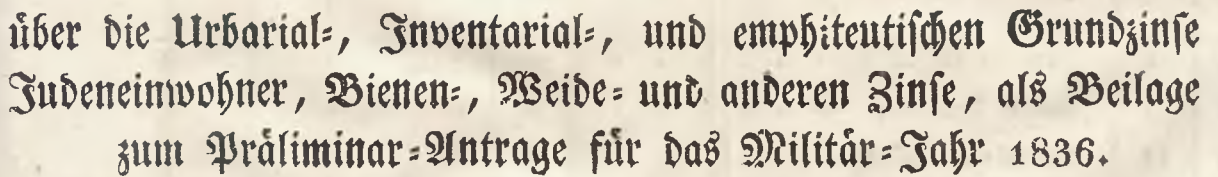 über die Urbarial-, Inventarial-, und emphiteutischen Grundzinse
Judeneinwohner, Bienen-, Weide- und anderen Zinse, als Beilage
zum Präliminar-Antrage für das Militär-Jahr 1836.